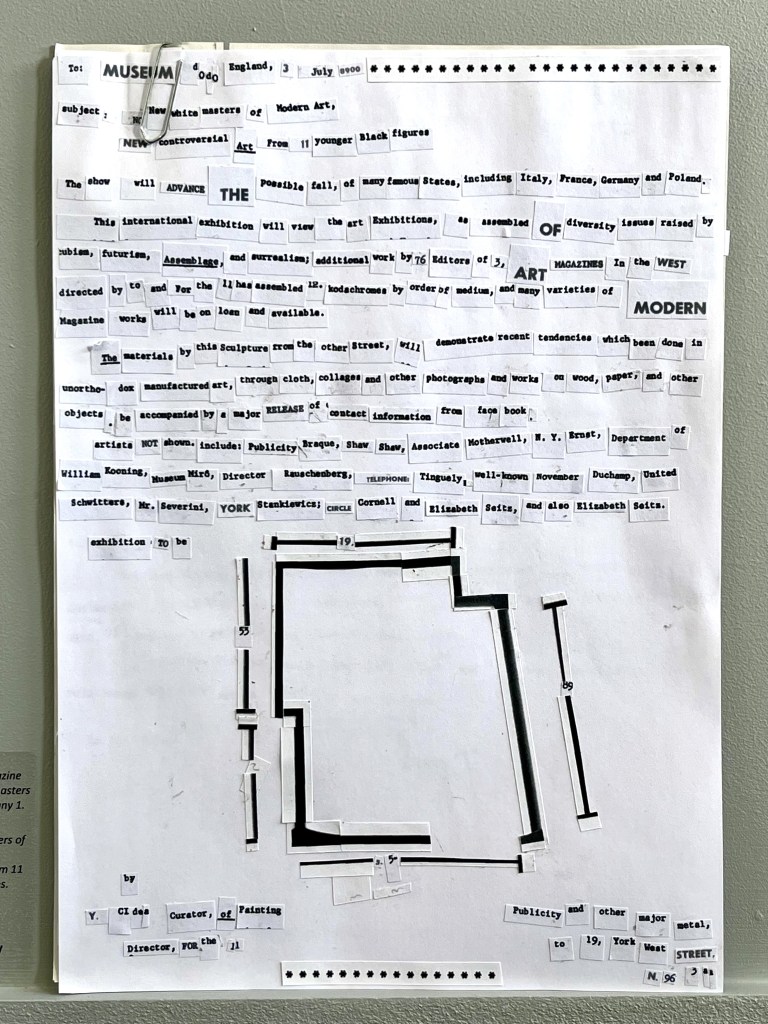 To: MUSEUM dOdO England, 3 July 0900 ****************************
subject: New white masters of Modern Art,
NEW controversial Art From 11 younger Black figures
The show will ADVANCE THE possible fall, of many famous States, including Italy, France, Germany and Poland.
This international exhibition will view the art Exhibitions, as assembled OF diversity issues raised by
cubism, futurism, Assemblage, and surrealism; additional work by 76 Editors of 3, ART MAGAZINES In the WEST
directed by to and For the 11 has assembled 12. kodachromes by order of medium, and many varieties of MODERN
Magazine works will be on loan and available.
The materials by this Sculpture from the other Street, will demonstrate recent tendencies which been done in
unortho- dox manufactured art, through cloth, collages and other photographs and works on wood, paper, and other
objects . be accompanied by a major RELEASE of contact information from face book.
artists NOT shown. include: Publicity Braque, Shaw Shaw, Associate Motherwell, N. Y. Ernst, Department of
William Kooning, Museum Miró, Director Rauschenberg, TELEPHONE: Tinguely, well-known November Duchamp, United
Schwitters, Mr. Severini, YORK Stankiewicz; CIRCLE Cornell and Elizabeth Seitz, and also Elizabeth Seitz.
exhibition TO be
19.
53
69
2
2. 5-
by
Y. CI des Curator, of Painting
Director, FOR the 11
Publicity and other major metal,
to 19, York West STREET,
N. 96 3
***************
azine
asters
any 1.
ers of
m 11
s.